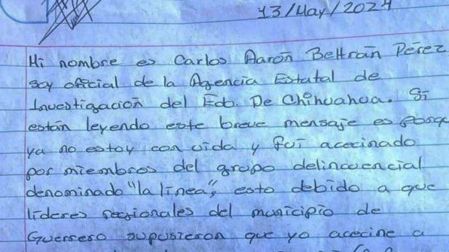 13/May/2024
Mi nombre es Carlos Aarón Beltrán Pérez
soy oficial de la Agencia Estatal de
Investigación del Edo. De Chihuahua. Si
están leyendo este breve mensaje es porque
ya no estoy con vida y fui acecinado
por miembros del grupo delincuencial
denominado "la linea", esto debido a que
lideres regionales del municipio de
Guerrero supusieron que yo acecine a